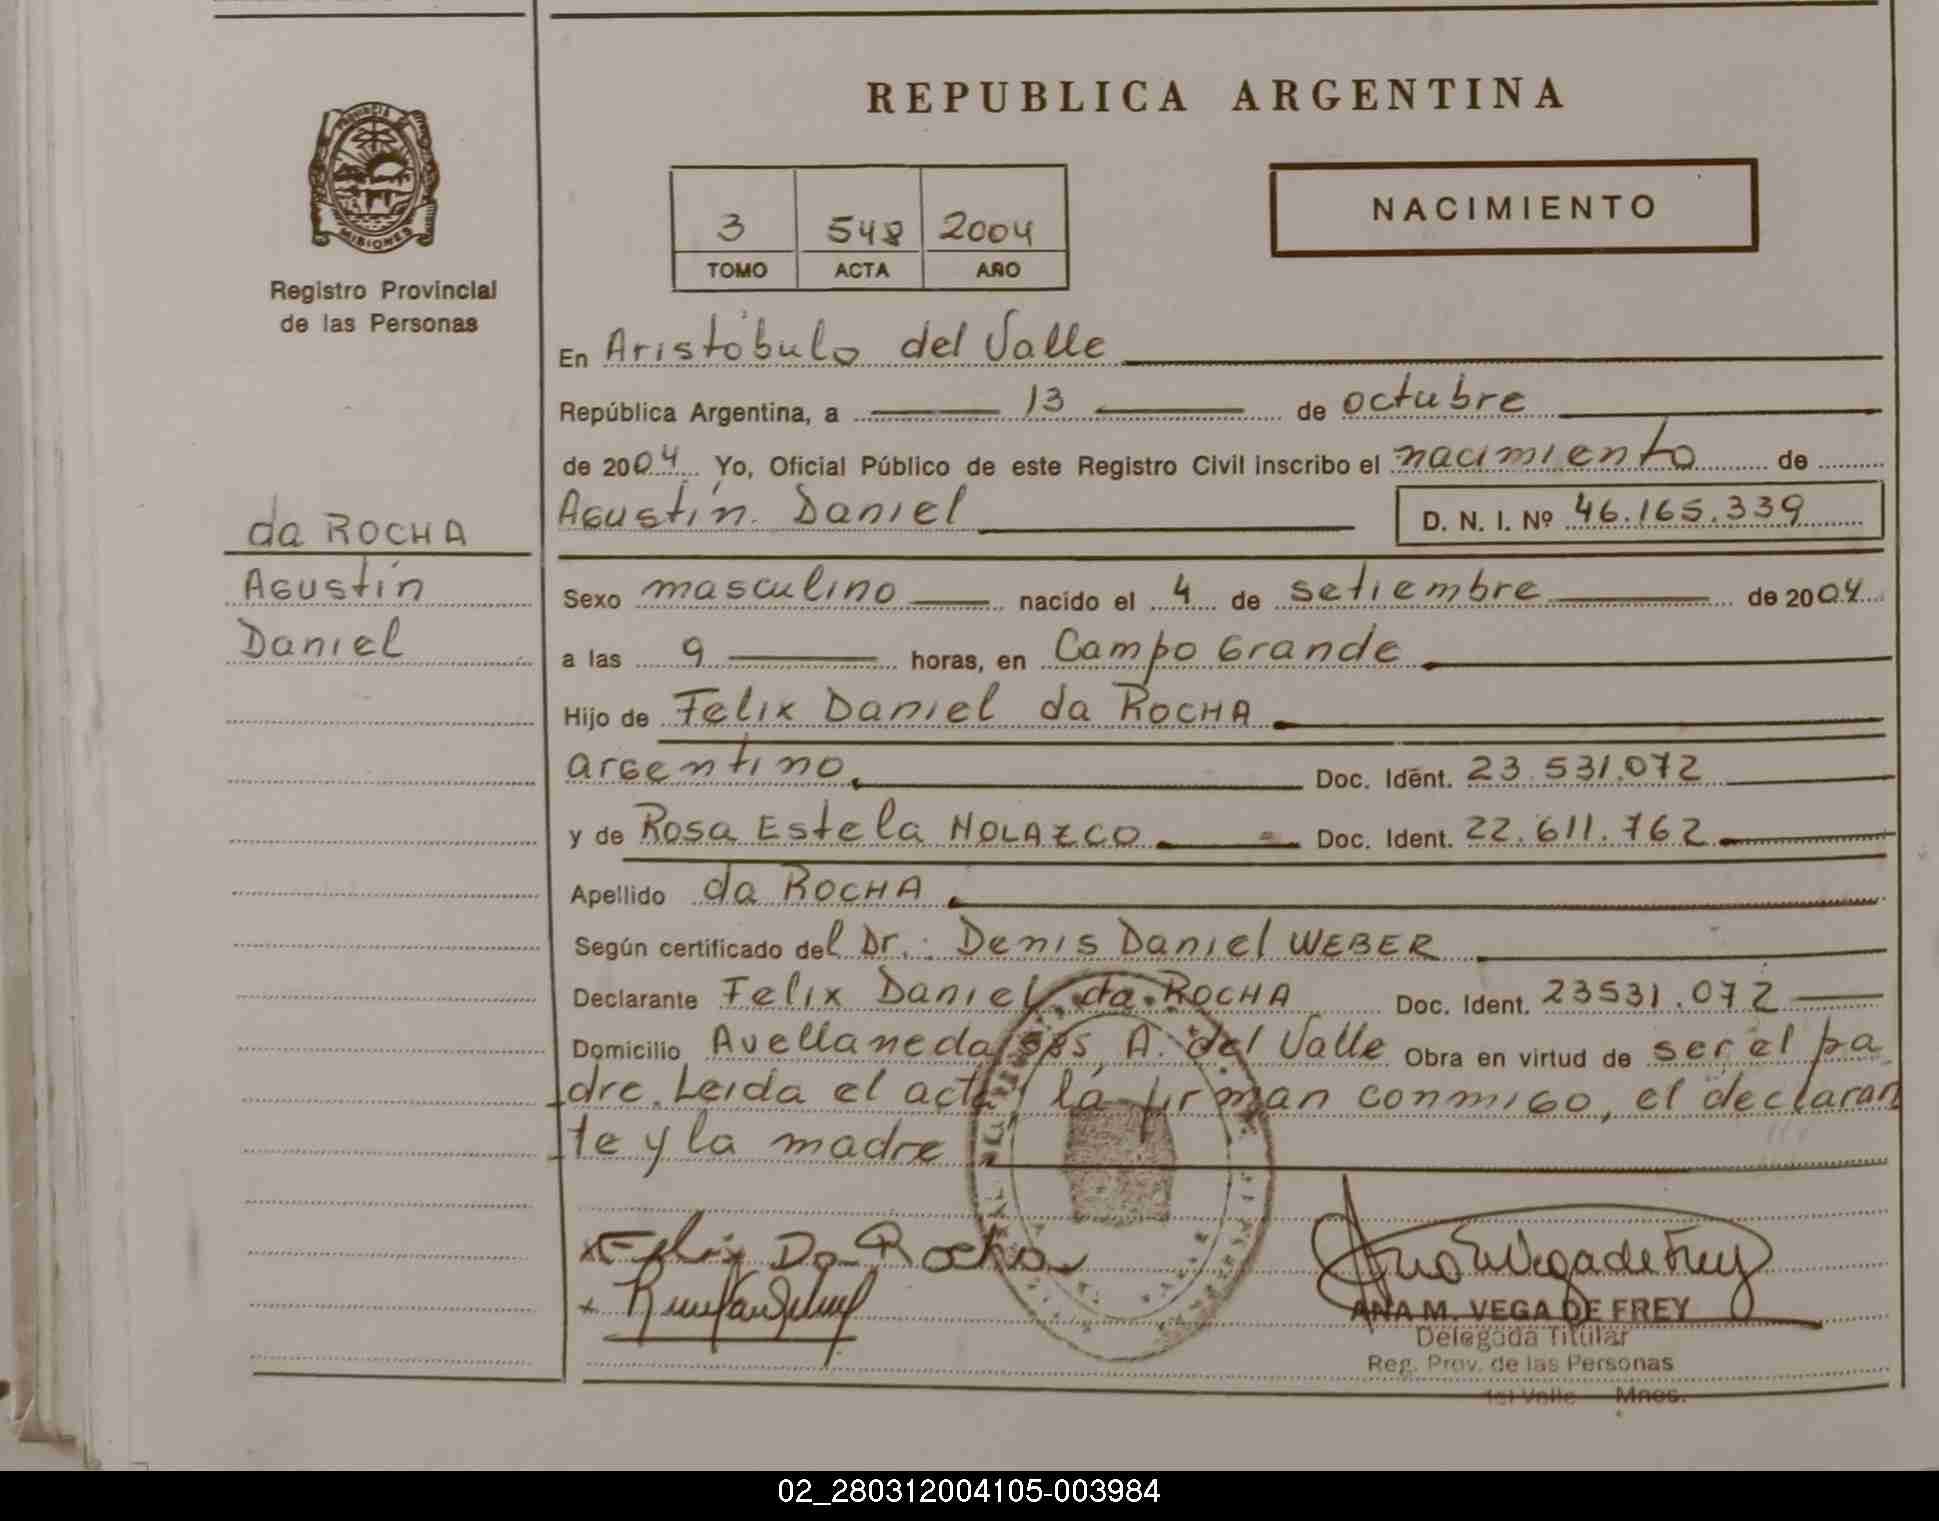 REPUBLICA ARGENTINA
PROVINCIA
MISIONES
Registro Provincial
de las Personas
3 548 2004
TOMO ACTA AÑO
NACIMIENTO
da ROCHA
Agustín
Daniel
En Aristóbulo del Valle
República Argentina, a 13 de octubre
de 2004 Yo, Oficial Público de este Registro Civil inscribo el nacimiento de
Agustín Daniel D. N. I. Nº 46.165.339
Sexo masculino nacido el 4 de setiembre de 2004
a las 9 horas, en Campo Grande
Hijo de Felix Daniel da ROCHA
argentino Doc. Ident. 23.531.072
y de Rosa Estela NOLAZCO Doc. Ident. 22.611.762
Apellido da ROCHA
Según certificado del Dr.: Denis Daniel WEBER
Declarante Felix Daniel da ROCHA Doc. Ident. 23531.072
Domicilio Avellaneda A. del Valle Obra en virtud de ser el pa
dre. Leida el acta, la firman conmigo, el declaran
te y la madre
x Felix Da Rocha
x
Ana M Vega de Frey
ANA M. VEGA DE FREY
Delegada Titular
Reg. Prov. de las Personas
del Valle Mnes.
02_280312004105-003984